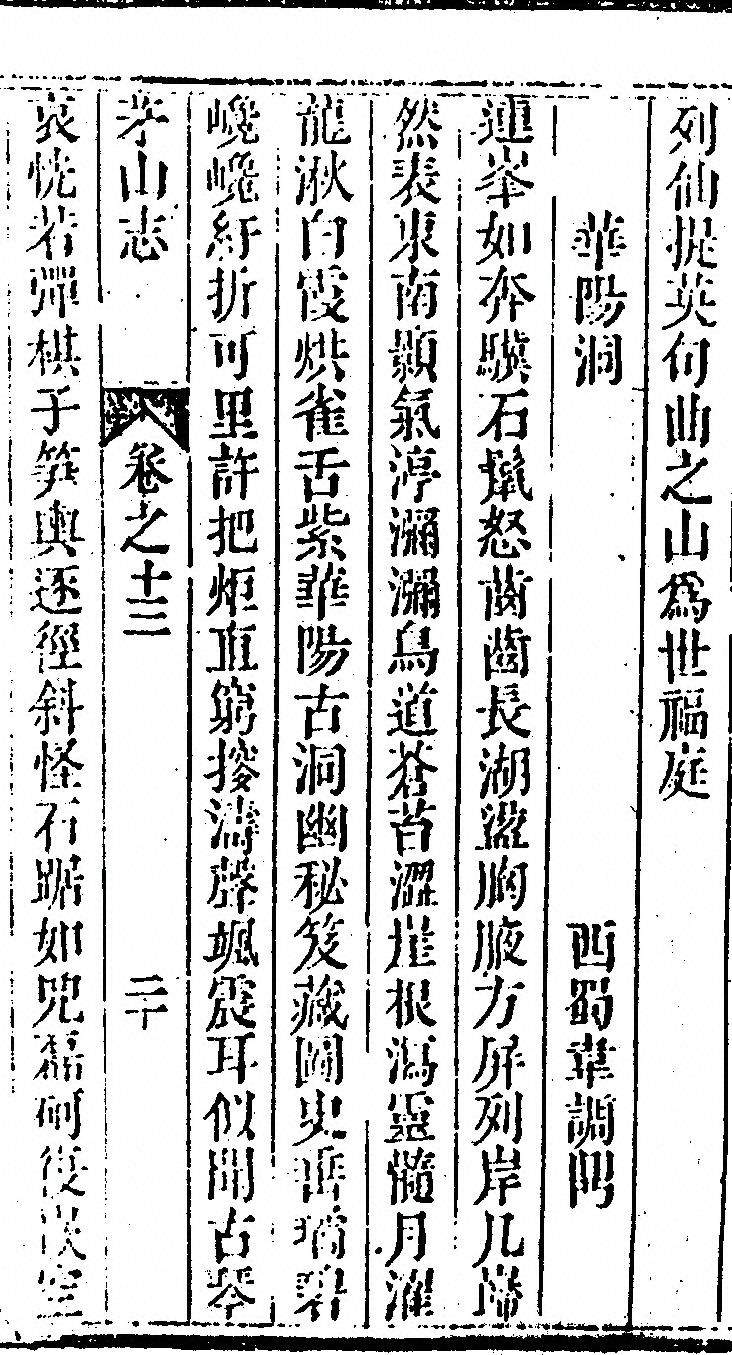 列仙提英句曲之山爲世福庭
華陽洞 西蜀韋調鼎
連峯如奔驥石鬣怒齒齒長湖盪胸腋方屏列岸几巋
然表東南顥氣渟瀰瀰鳥道蒼苔澀崖根瀉靈髓月濯
龍湫白霞烘雀舌紫華陽古洞幽秘笈藏圖史垂璃碧
巉巉紆折可里許把炬直窮搜濤聲颯震耳似聞古琴
茅山志 卷之十三 二十
哀恍若彈棋子笋輿逐徑斜怪石踞如兕磊砢復嵌空